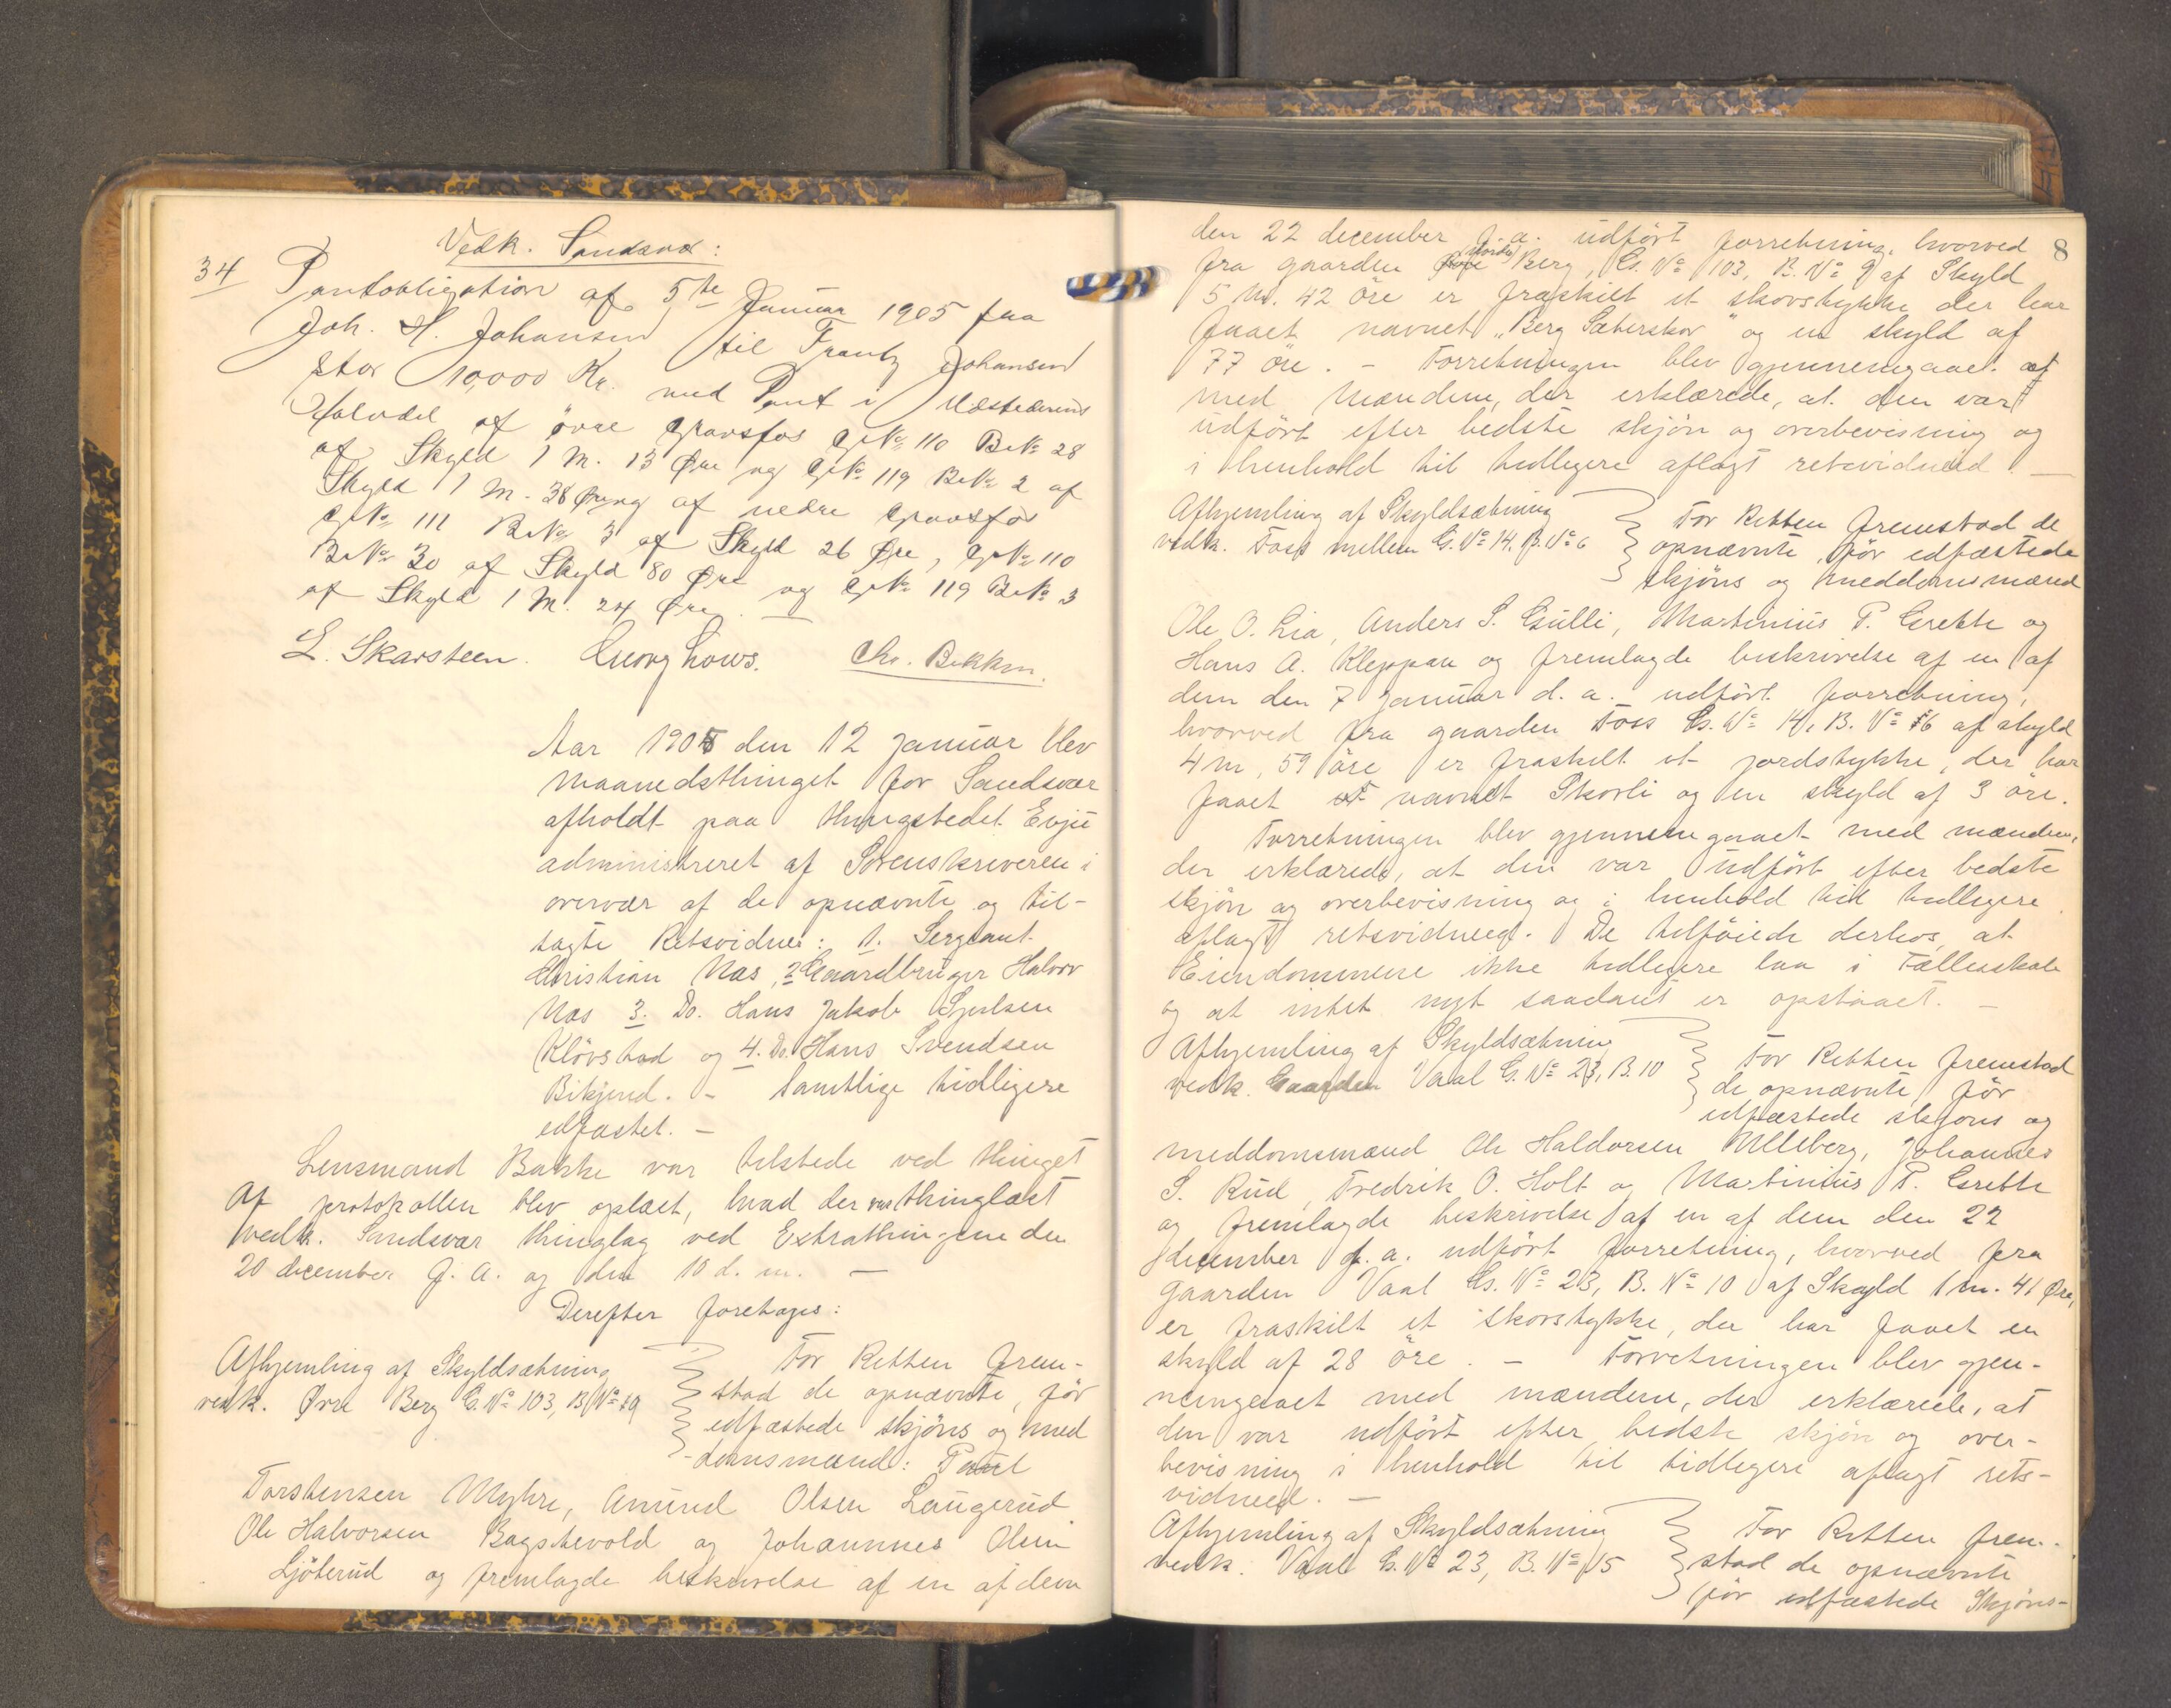 Vedk. Sandsvær:
34 Pantobligation af 5te Januar 1905 fra
Joh. H. Johansen til Frantz Johansen
stor 10,000 Kr. med Pant i Uldsliberiens
Halvdel af øvre Gravfos G.No 110 B.No 28
af Skyld 1 M. 13 Øre og G.No 119 B.No 2 af
Skyld 1 M. 38 Øre og af nedre Gravfos
G.No 111 B.No 3 af Skyld 26 Øre, G.No 110
B.No 30 af Skyld 80 Øre og G.No 119 B.No 3
af Skyld 1 M. 24 Øre. —
L. Skarsteen. Georg Lows. Chr. Bekken.
Aar 1905 den 12 januar blev
maanedsthinget for Sandsvær
afholdt paa thingstedet Evju
administreret af Sorenskriveren i
overvær af de opnævnte og til-
sagte Retsvidner: 1. Sergeant
Christian Næs, 2 Gaardbruger Halvor
Næs 3. Do. Hans Jakob Gjulsen
Klövstad og 4. Do. Hans Svendsen
Bikjend. – Samtlige tidligere
edfæstet. —
Lensmand Bakke var tilstede ved thinget
Af protokollen blev oplæst, hvad der var thinglæst
vedk. Sandsvær thinglag ved Extrathingene den
20 december f. a. og den 10 d. m. —
Derefter foretoges:
Afhjemling af Skyldsætning
vedk. Øvre Berg G. No 103, B. No 9
For Retten frem-
stod de opnævnte, för
edfæstede skjöns og med
-domsmænd: Paul
Torstensen Myhre, Amund Olsen Laugerud
Ole Halvorsen Bagstevold og Johannes Olsen
Ljöterud og fremlagde beskrivelse af en af dem
8
den 22 december f. a. udført forretning, hvorved
fra gaarden Øvre nordre Berg, G. No 103, B. No 9 af Skyld
5 M. 42 öre er fraskilt et skovstykke der har
faaet navnet „Berg Sæterskov" og en skyld af
77 öre. – Forretningen blev gjennemgaaet af
med Mændene, der erklærede, at den var
udført efter bedste skjön og overbevisning og
i henhold til tidligere aflagt retsvidneed. —
Afhjemling af Skyldsætning
vedk. Foss mellem G. No 14, B. No 6
For Retten fremstod de
opnævnte, för edfæstede
skjöns og meddomsmænd
Ole O. Lia, Anders S. Gulli, Martinius P. Grette og
Hans A. Kleppan og fremlagde beskrivelse af en af
dem den 7 januar d. a. udfört forretning,
hvorved fra gaarden Foss G. No 14, B. No 6 af skyld
4 m, 59 öre er fraskilt et jordstykke, der har
faaet navnet Skovli og en skyld af 3 öre.
Forretningen blev gjennemgaaet med mændene,
der erklærede, at den var udfört efter bedste
skjön og overbevisning og i henhold til tidligere
aflagt retsvidneed. De tilföiede derhos, at
Eiendommene ikke tidligere laa i Fællesskab
og at intet nyt saadant er opstaaet. —
Afhjemling af Skyldsætning
vedk. Gaarden Vaal G. No 23, B. 10
For Retten fremstod
de opnævnte, för
edfæstede skjöns og
meddomsmænd Ole Haldorsen Ulleberg, Johannes
S. Rud, Fredrik O. Holt og Martinius P. Grette
og fremlagde beskrivelse af en af dem den 22
december f. a. udfört forretning, hvorved fra
gaarden Vaal G. No 23, B. No 10 af Skyld 1 m. 41 Øre,
er fraskilt et skovstykke, der har faaet en
skyld af 28 öre. — Forretningen blev gjen-
nemgaaet med mændene, der erklærede, at
den var udfört efter bedste skjön og over-
bevisning i henhold til tidligere aflagt rets-
vidneed. —
Afhjemling af Skyldsætning
vedk. Vaal G. No 23, B. No 15
For Retten frem-
stod de opnævnte
för edfæstede Skjöns-